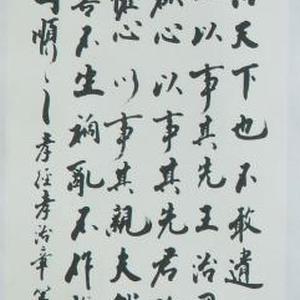 天下也不敢遺
以事其先王治國
心以事其先君
心以事其親夫然
害不生禍亂不作
順之孝經孝治章